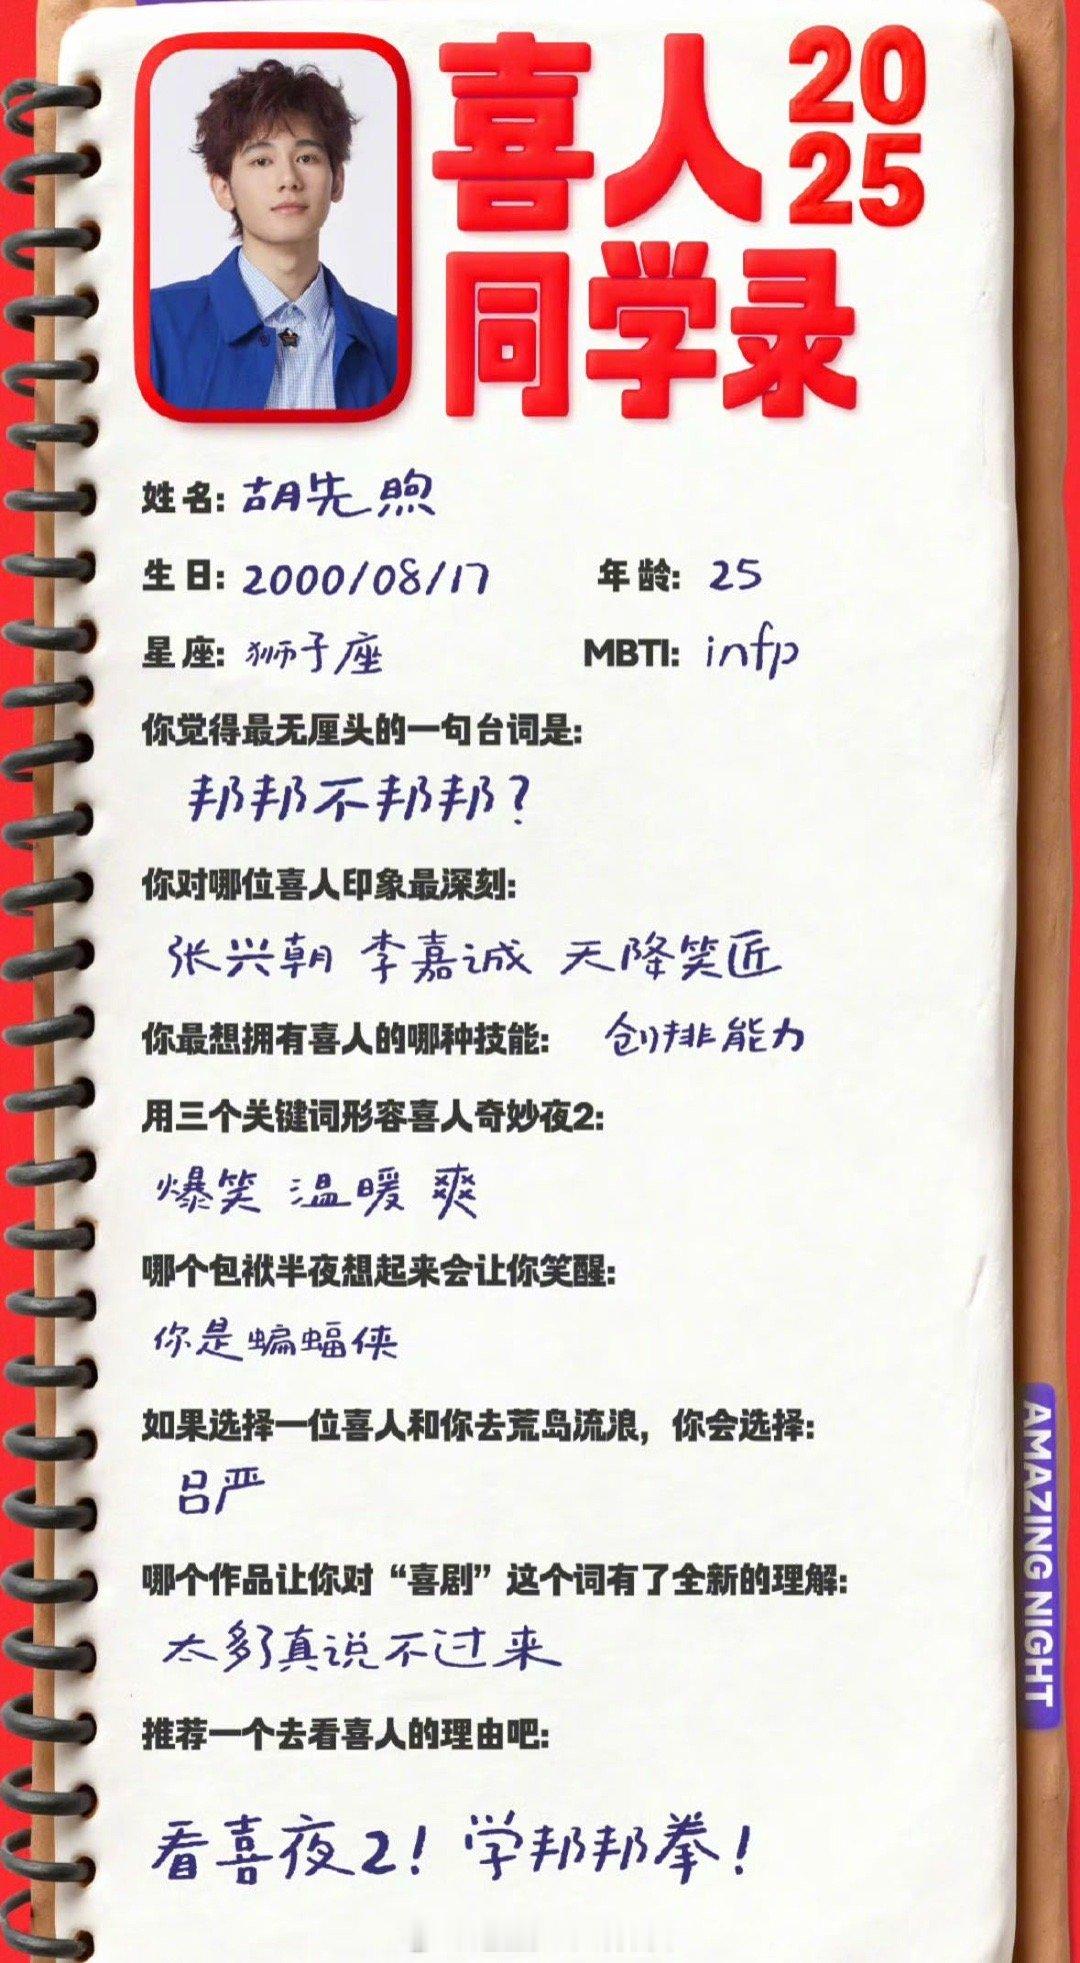 喜人 20
25
同学录
姓名: 胡先煦
生日: 2000/08/17 年龄: 25
星座: 狮子座 MBTI: infp
你觉得最无厘头的一句台词是:
邦邦不邦邦?
你对哪位喜人印象最深刻:
张兴朝 李嘉诚 天降笑匠
你最想拥有喜人的哪种技能: 创排能力
用三个关键词形容喜人奇妙夜2:
爆笑 温暖 爽
哪个包袱半夜想起来会让你笑醒:
你是蝙蝠侠
如果选择一位喜人和你去荒岛流浪,你会选择:
吕严
哪个作品让你对“喜剧”这个词有了全新的理解:
太多了真说不过来
推荐一个去看喜人的理由吧:
看喜夜2! 学邦邦拳!
AMAZING NIGHT